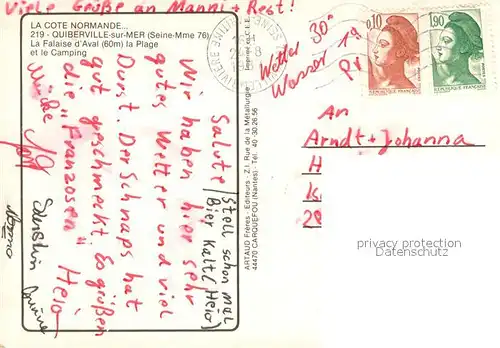 Viele Grüße an Manni + Rest!
LA COTE NORMANDE...
219 - QUIBERVILLE-sur-MER (Seine-Mme 76)
La Falaise d'Aval (60m) la Plage
et le Camping
Salute/Stell schon mal
Bier kalt (Heio)
Wir haben hier sehr
gutes Wetter und viel
Durst. Der Schnaps hat
gut geschmeckt. Es grüßen
die "Franzosen" Heio
ARTAUD Frères - Editeurs - Z.I. Rue de la Métallurgie
44470 CARQUEFOU (Nantes) - Tél. 40-30.26.56
Wetter 30°
Wasser 19
0,10
1,90
REPUBLIQUE FRANCAISE
An
Arndt + Johanna
H
K
29
privacy protection
Datenschutz